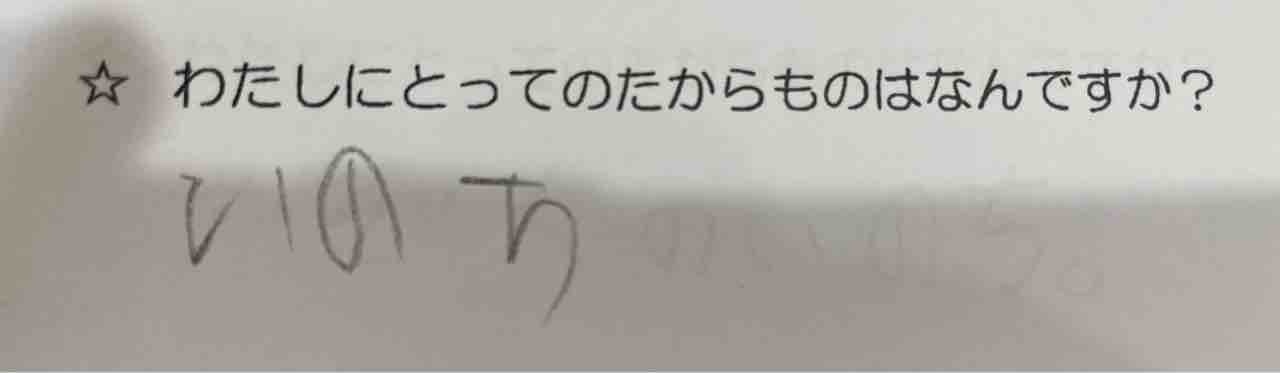 ☆ わたしにとってのたからものはなんですか？
いのち